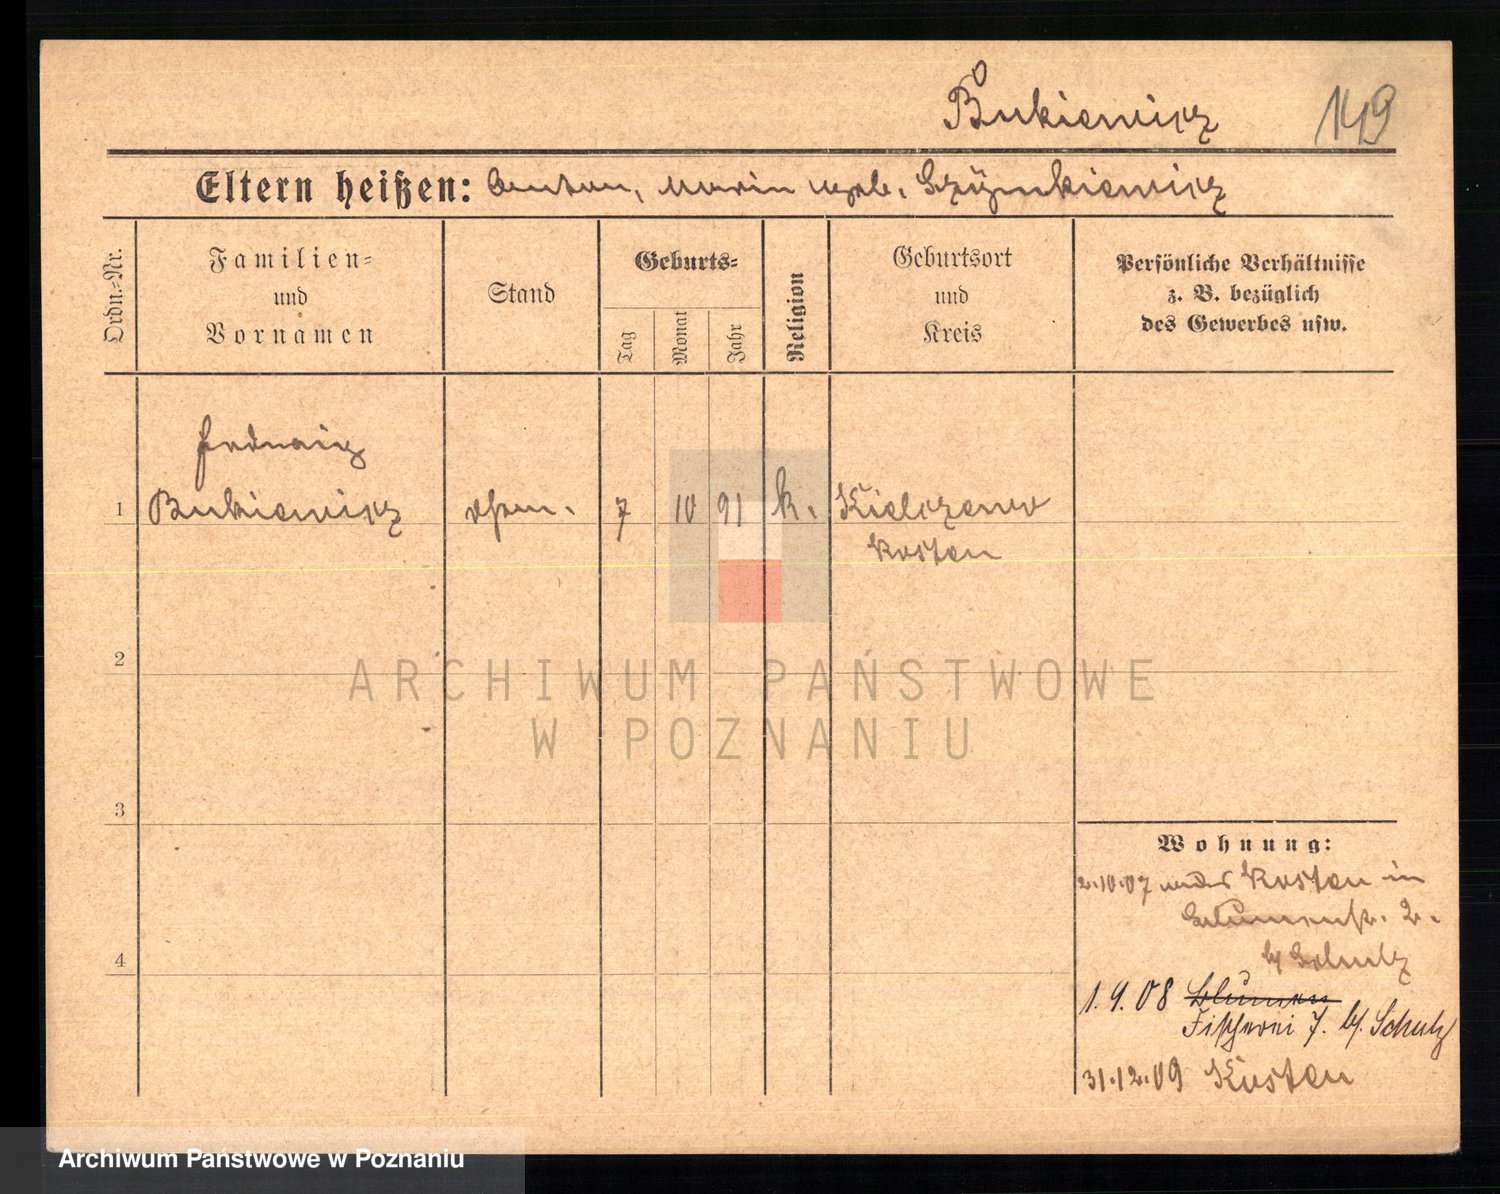 Bukiewicz 149
Eltern heißen: Anton, Maria geb. Szymkiewicz
Ordn.-Nr.
Familien-
und
Vornamen
Stand
Geburts-
Tag
Monat
Jahr
Religion
Geburtsort
und
Kreis
Persönliche Verhältnisse
z. B. bezüglich
des Gewerbes usw.
Hedwig
1 Bukiewicz 7 10 91 k. Kielczewo
Kosten
2
ARCHIWUM PAŃSTWOWE
W POZNANIU
3
Wohnung:
2.10.07 Kosten in
Blumenstr. 2.
b/ Schulz
4
1.9.08 Blumen
Fischerei 7. b/ Schulz
31.12.09 Kosten
Archiwum Państwowe w Poznaniu